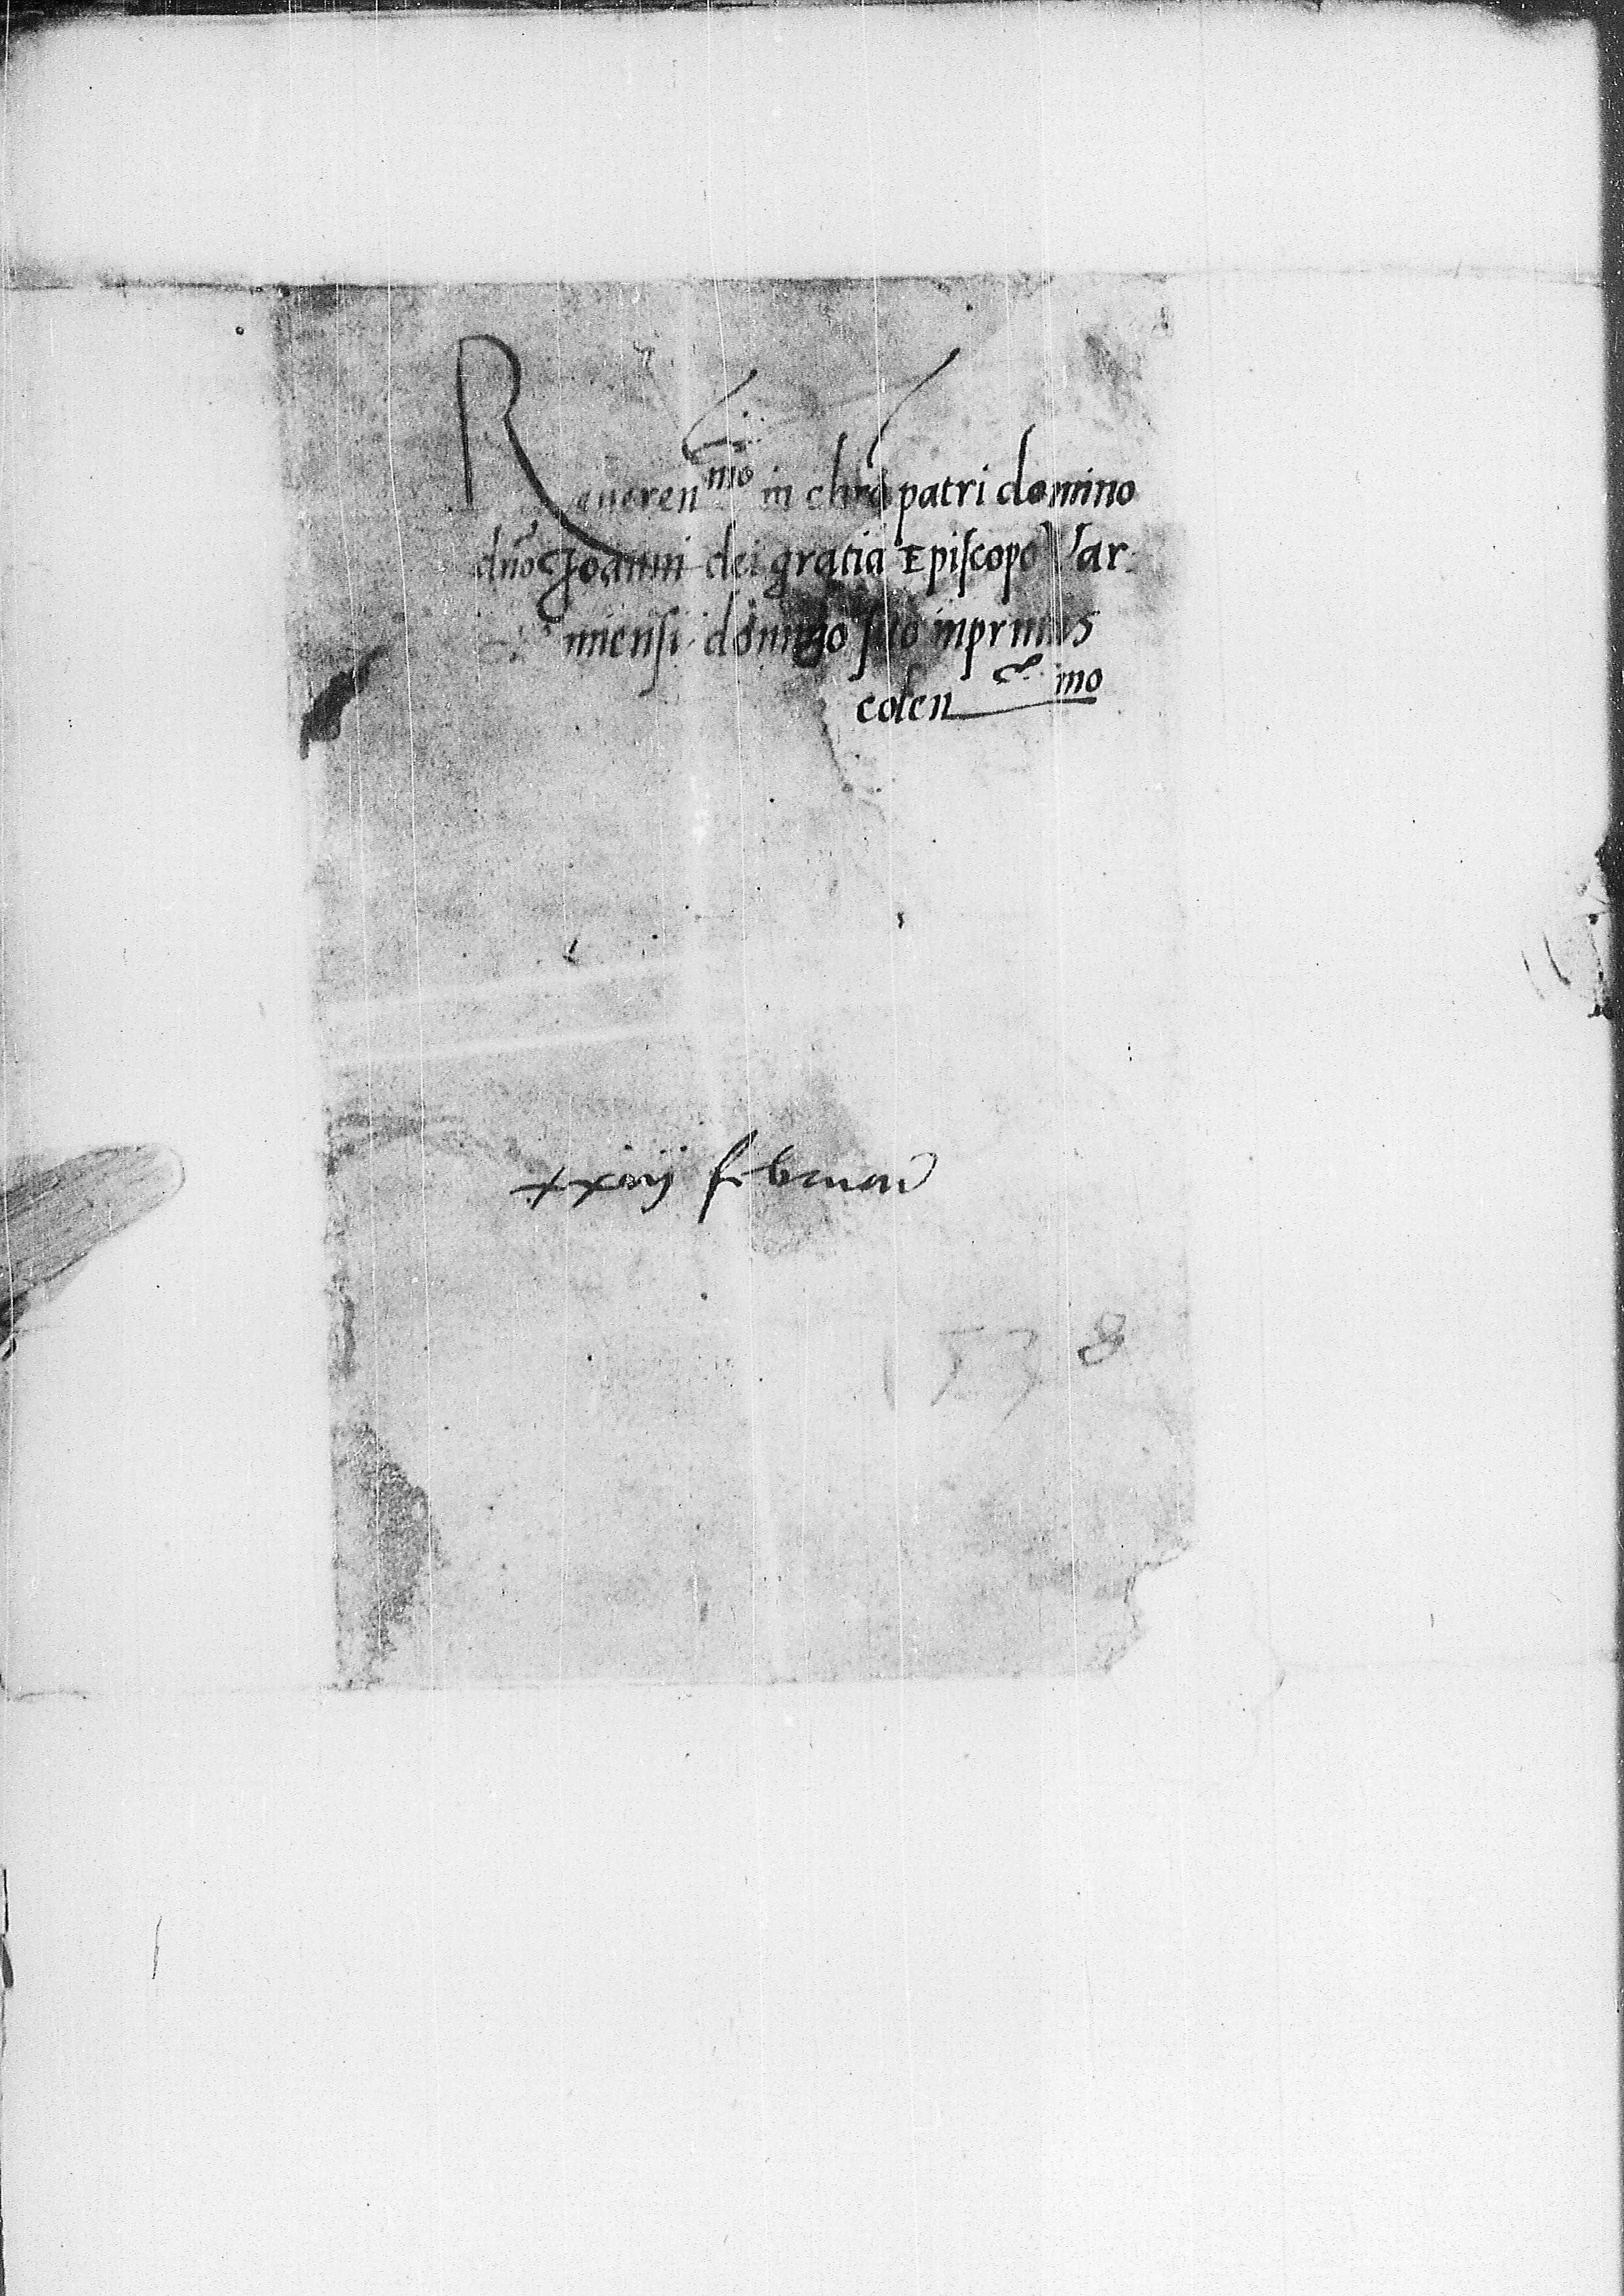 Reueren^mo in chro patri domino
dno Joanni dei gratia Episcopo Var
miensi domino suo inprimis
colen^mo
xxiiij februarij
1538